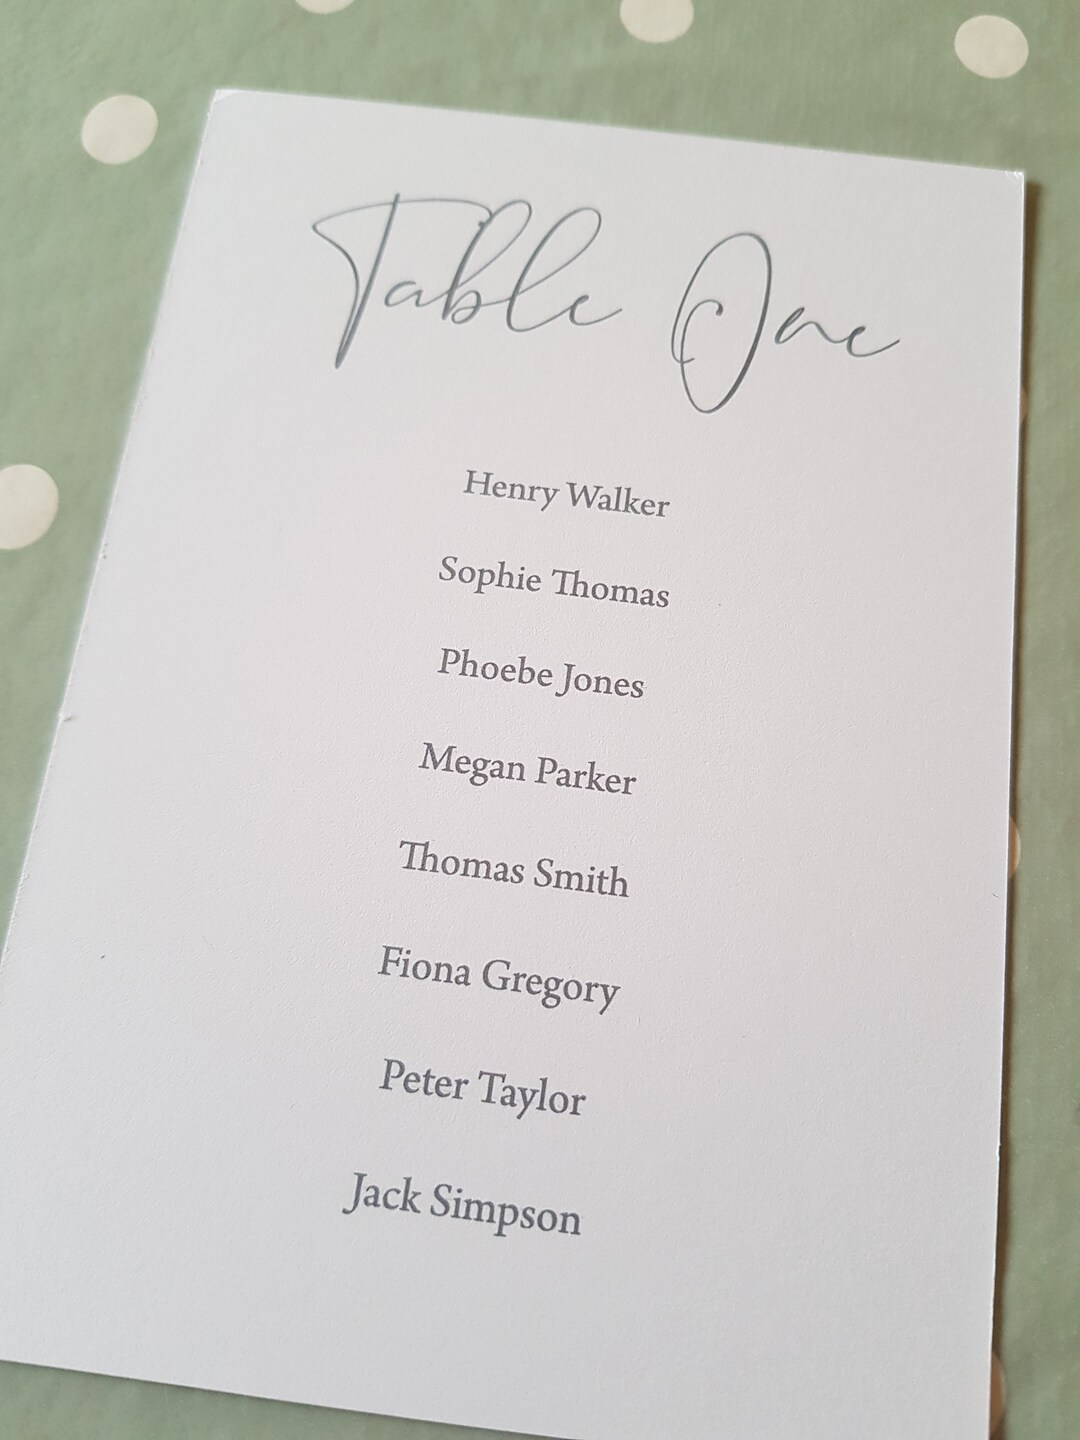 Table One
Henry Walker
Sophie Thomas
Phoebe Jones
Megan Parker
Thomas Smith
Fiona Gregory
Peter Taylor
Jack Simpson